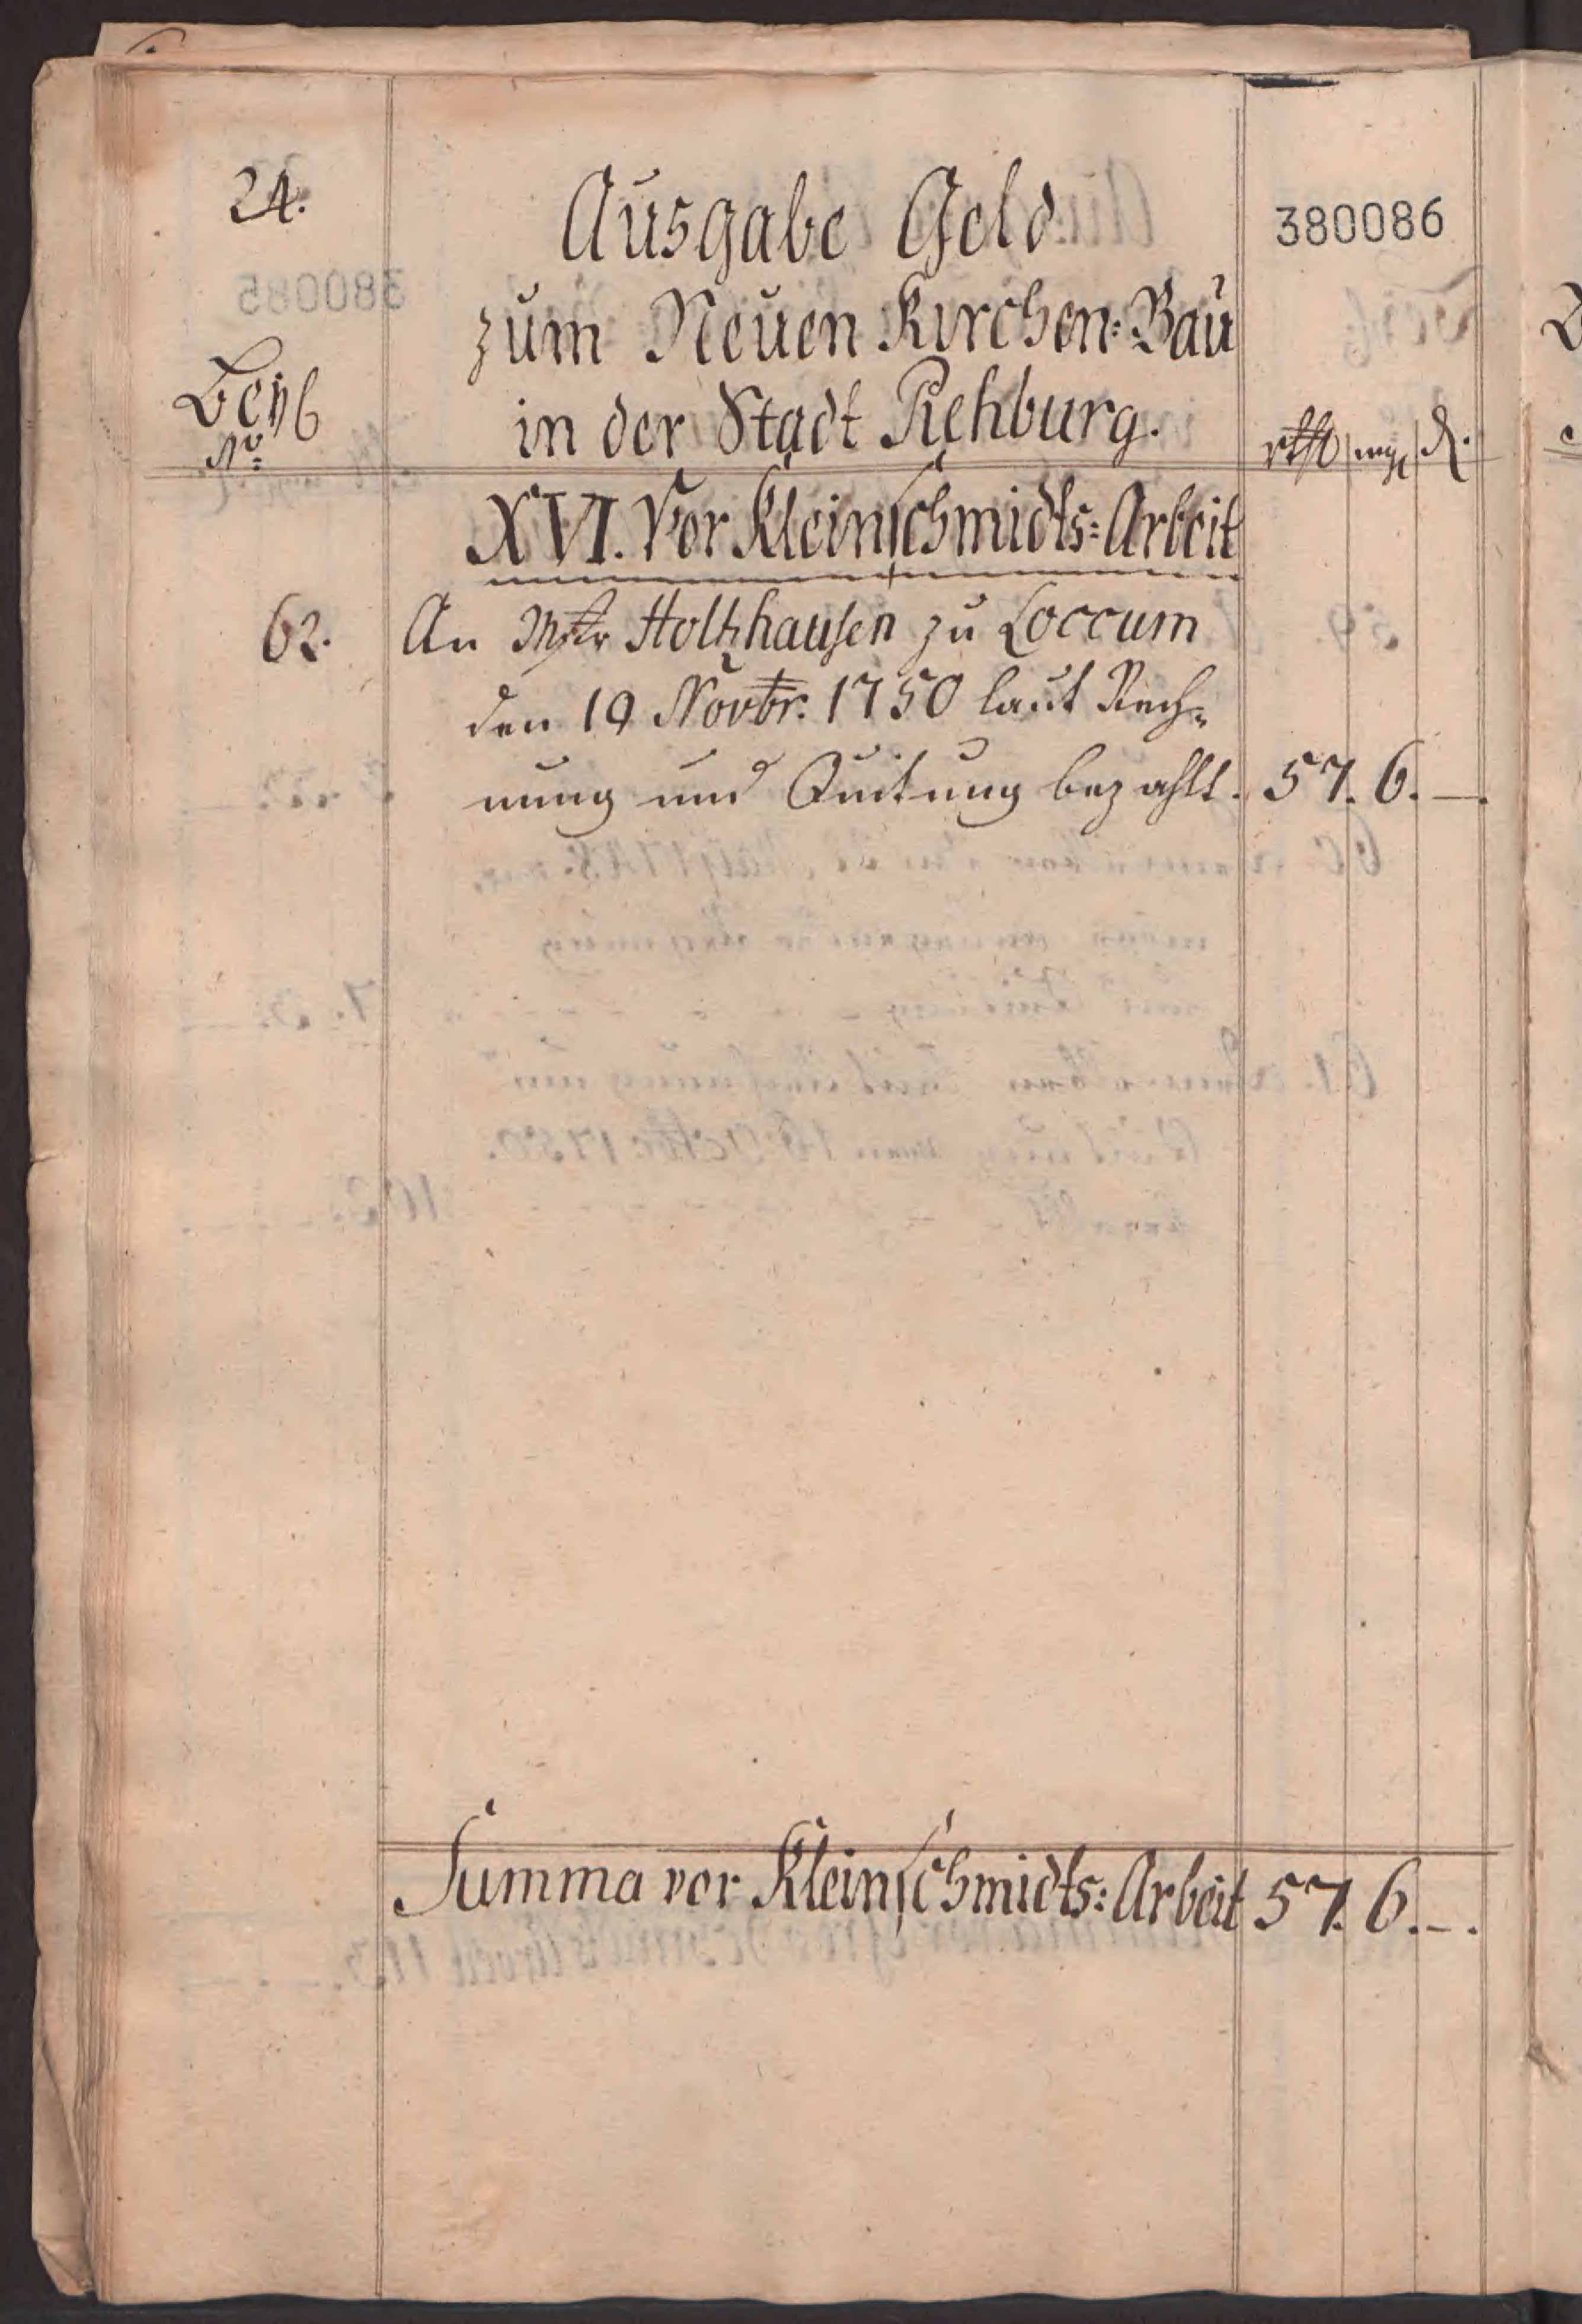 24.
380086
Ausgabe Geld
zum Neuen Kirchen=Bau
in der Stadt Rehburg.
Beyl
No
rthl mg d.
XVI. Vor Kleinschmidts=Arbeit
62. An Mstr Holtzhausen zu Loccum
den 19 Novbr. 1750 laut Rech=
nung und Quitung bezahlt. 57. 6. —.
Summa vor Kleinschmidts=Arbeit 57. 6. —.